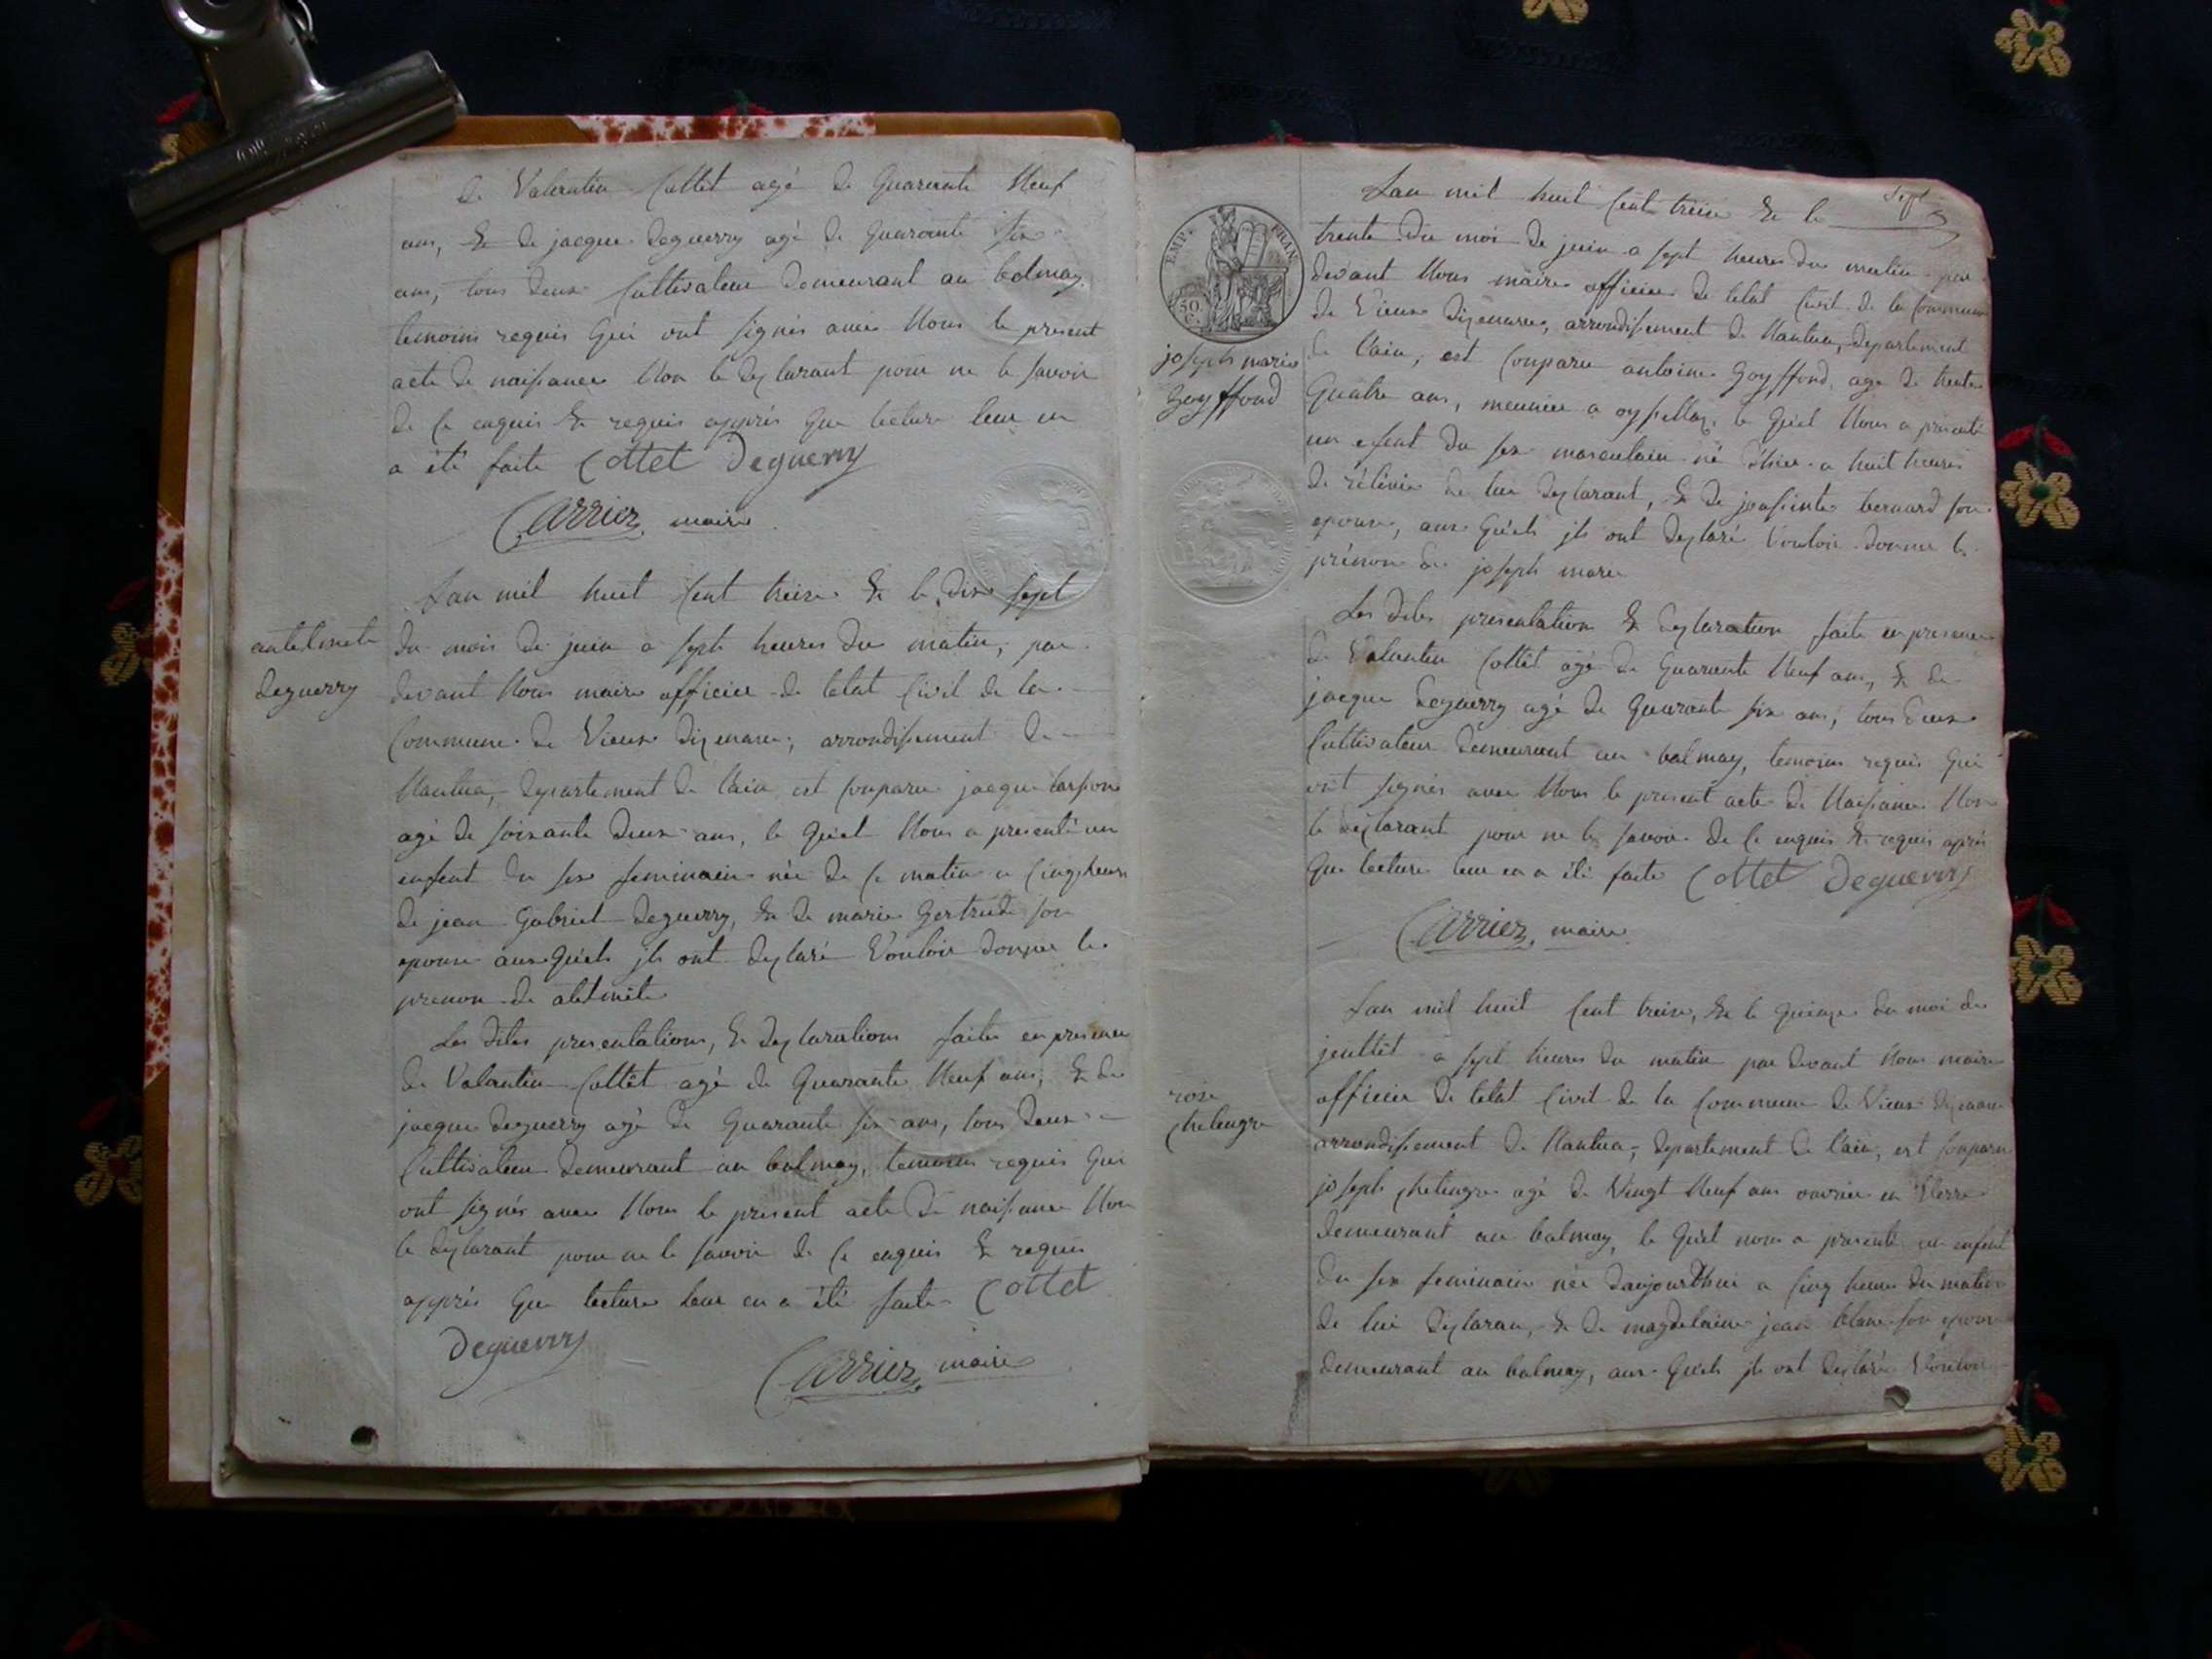 de Valentin Cottet agé de Quarante Neuf
ans, & de jacque deguerry agé de Quarante six
ans, tous deux Cultivateur demeurant au balmay,
temoins requis Qui ont signés avec Nous le present
acte de naissance Non le declarant pour ne le savoir
de ce enquis & requis apprés Que lecture leur en
a été faite Cottet Deguerry
Carrier, maire
Lan mil huit Cent treize & le dix sept
du mois de juin a sept heures du matin, par
devant Nous maire officier de letat Civil de la
Commune de Vieux dizenave, arrondissement de
Nantua, departement de l'ain est conparu jacque
agé de soixante deux ans, le Quel Nous a presenté un
enfent du sex feminain née de ce matin a Cinq heures
de jean Gabriel deguerry, & de marie Gertrude son
epouse aux Quels jls ont declaré Vouloir donner le
prenon de
Les dites presentations, & declarations faites en presence
de Valantin Cottet agé de Quarante Neuf ans, & de
jacque deguerry agé de Quarante six ans, tous deux
Cultivateur demeurant au balmay, temoins requis Qui
ont signés avec Nous le present acte de naissance Non
le declarant pour ne le savoir de ce enquis & requis
apprés Que lecture leur en a été faite Cottet
Deguerry
Carrier, maire
deguerry
Sept
EMP. FRAN.
50 C.
joseph marie
Goyffond
Lan mil huit Cent treize & le
trente du moi de juin a sept heures du matin par
devant Nous maire officier de letat Civil de la Commune
de Vieux dizenave, arrondissement de Nantua, departement
de l'ain, est Conparu antoine Goyffond, age de trente
Quatre ans, meunier a oyssellaz, le Quel Nous a presenté
un efent du sex masculain né d'hier a huit heures
de lui declarant, & de bernard son
epouse, aux Quels jls ont declaré Vouloir donner le
prénon de joseph marie
Les dites presentation & declaration faite en presence
de Valantin Cottet agé de Quarante Neuf ans, & de
jacque deguerry agé de Quarante six ans, tous deux
Cultivateur demeurant au balmay, temoins requis Qui
ont signés avec Nous le present acte de Naissance Non
le declarant pour ne le savoir de ce enquis & requis aprés
Que lecture leur en a été faite Cottet Deguerry
Carrier, maire
rose
Lan mil huit Cent treize, & le Quinze du moi de
jeullet a sept heures du matin par devant Nous maire
officier de letat Civil de la Commune de Vieux dizenave
arrondissement de Nantua, departement de l'ain, est conparu
joseph agé de Vingt Neuf ans ouvrier en
demeurant au balmay, le Quel nous a presenté un enfent
du sex feminain née daujourdhui a Cinq heure du matin
de lui declaran, & de magdelaine jean blanc son epouse
demeurant au balmay, aux Quels jls ont declaré Vouloir